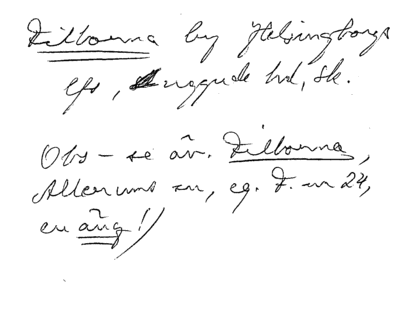 Filborna by Helsingborgs
lfs, Luggude hd, Sk.
Obs – se äv. Filborna,
Allerums sn, eg. F. nr 24,
en äng!)